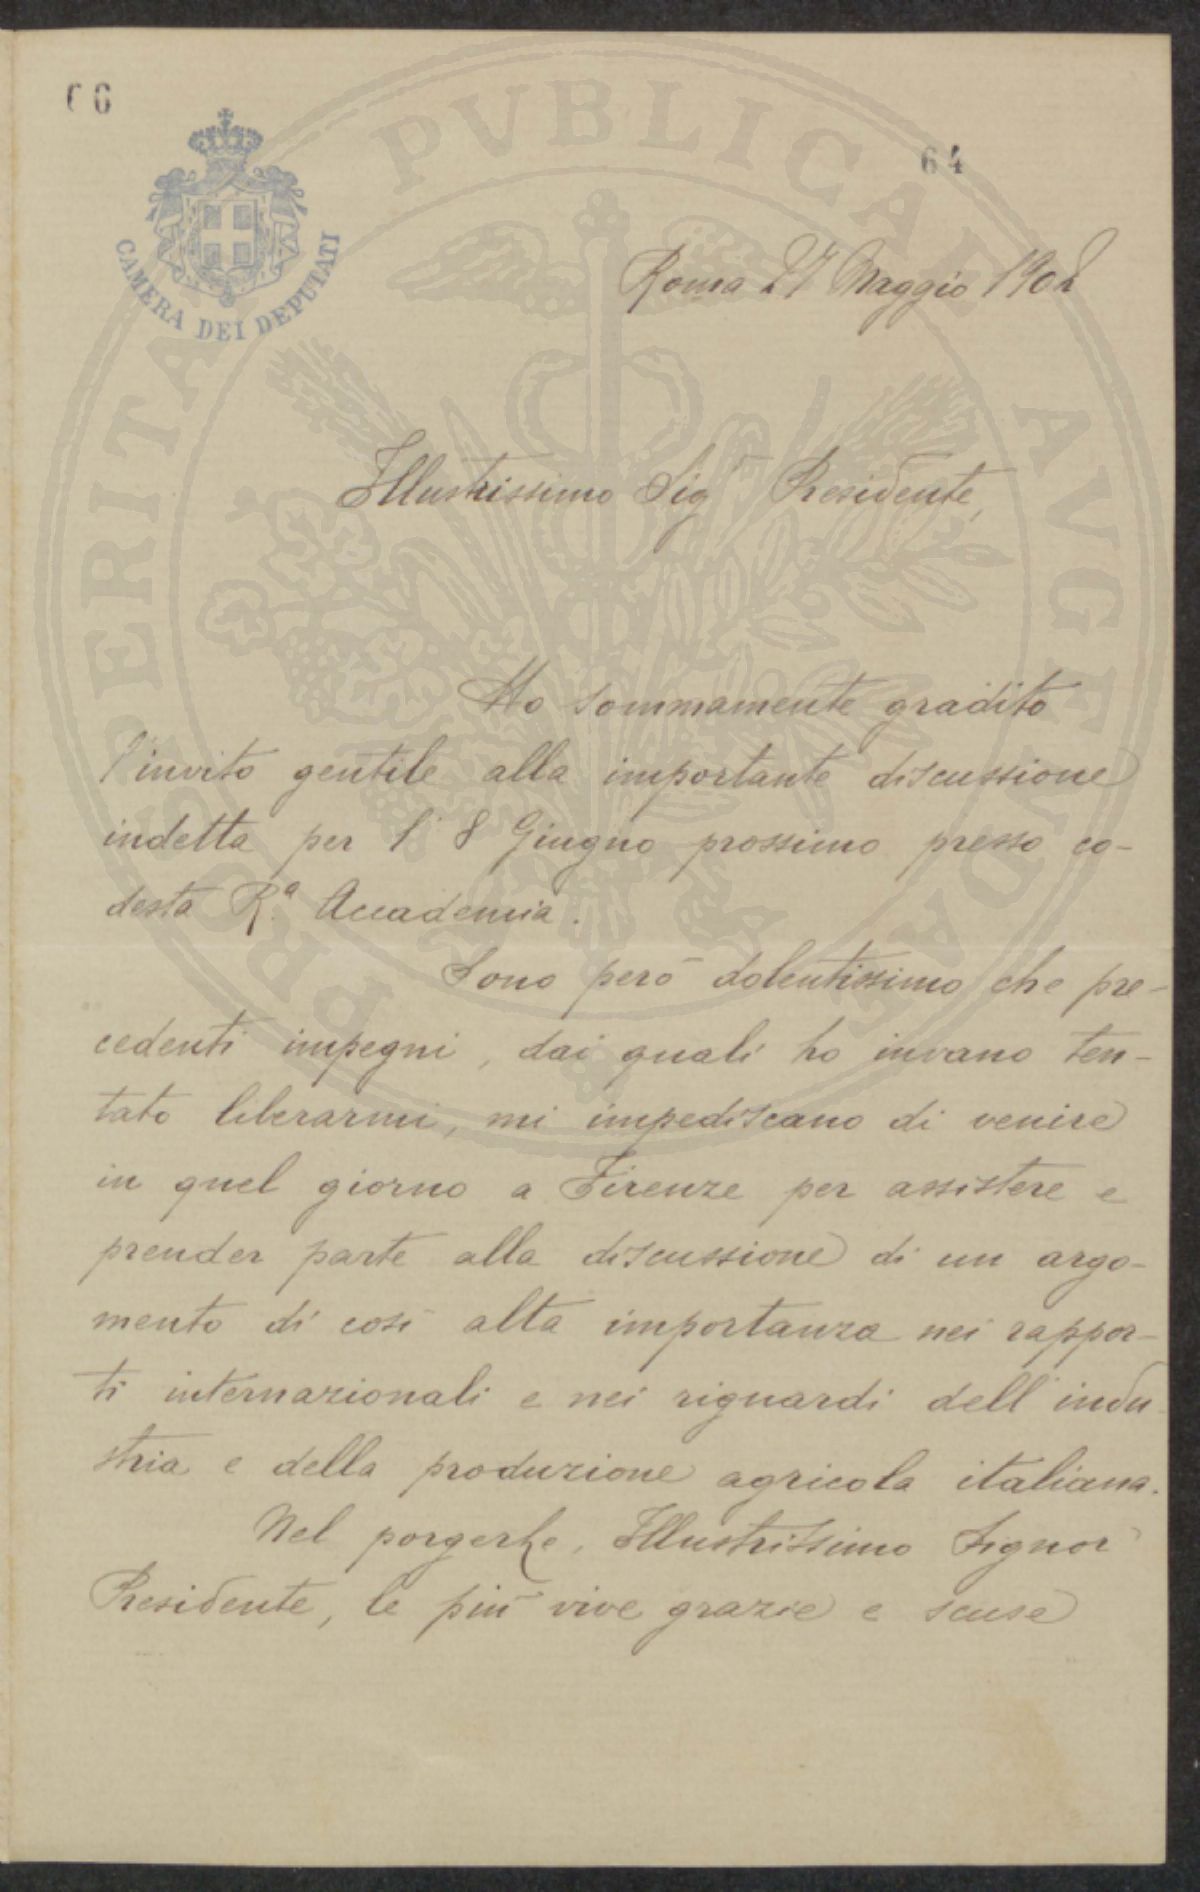 66
64
CAMERA DEI DEPUTATI
PROSPERITATI PVBLICAE AVGENDAE
Roma 27 Maggio 1902
Illustrissimo Sigr Presidente,
Ho sommamente gradito
l'invito gentile alla importante discussione
indetta per l'8 Giugno prossimo presso co-
desta R.a Accademia.
Sono però dolentissimo che pre-
cedenti impegni, dai quali ho invano ten-
tato liberarmi, mi impediscano di venire
in quel giorno a Firenze per assistere e
prender parte alla discussione di un argo-
mento di così alta importanza nei rappor-
ti internazionali e nei riguardi dell'indu
stria e della produzione agricola italiana.
Nel porgerLe, Illustrissimo Signor
Presidente, le più vive grazie e scuse